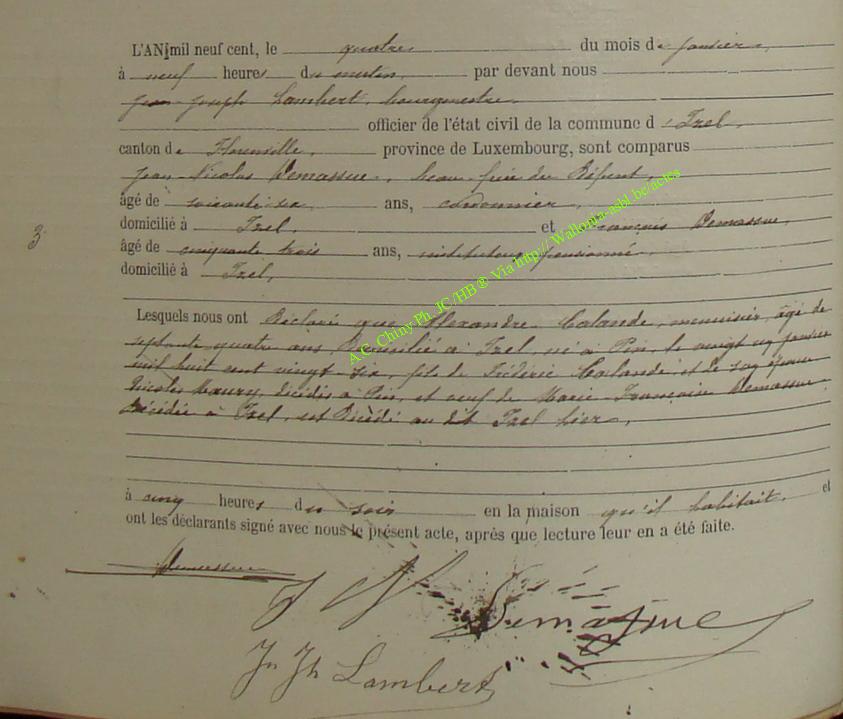 L'AN mil neuf cent, le quatre du mois de janvier,
à neuf heures du matin, par devant nous
Jean-Joseph Lambert, bourgmestre
officier de l'état civil de la commune d'Izel,
canton de Florenville, province de Luxembourg, sont comparus
Jean-Nicolas Demasue, beau-frère du Défunt,
âgé de soixante six ans, cordonnier,
domicilié à Izel, et François Demasue,
3
âgé de cinquante trois ans, instituteur pensionné,
domicilié à Izel,
Lesquels nous ont Déclaré que Alexandre Calande, menuisier, âgé de
septante quatre ans, Domicilié à Izel, né à Pin, le vingt un janvier
mil huit cent vingt-six, fils de Frédéric Calande et de son épouse
Nicolas Maury, décédés à Pin, et veuf de Marie-Françoise Demasue
Décédée à Izel, est Décédé au dit Izel hier,
à cinq heures du soir en la maison qu'il habitait. et
ont les déclarants signé avec nous le présent acte, après que lecture leur en a été faite.
Demasue
J N Demasue
Jn Jh Lambert
A.C. Chiny Ph. JC/HB® Via http://Wallonia-asbl.be/actes